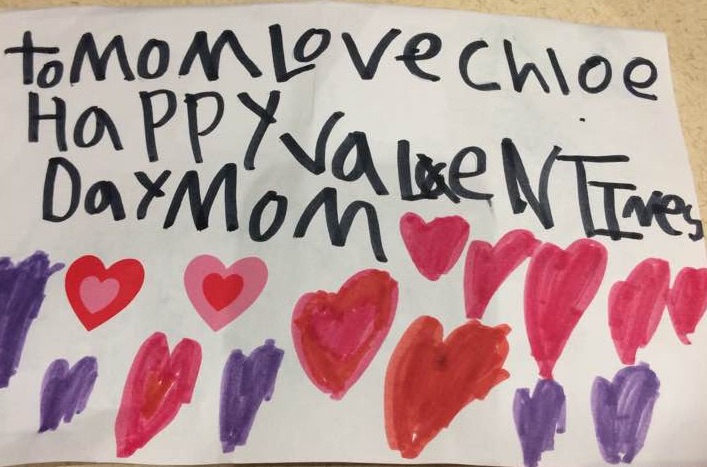 to MOM LOVe Chloe
HaPPY ValeNTInes
Day MOM